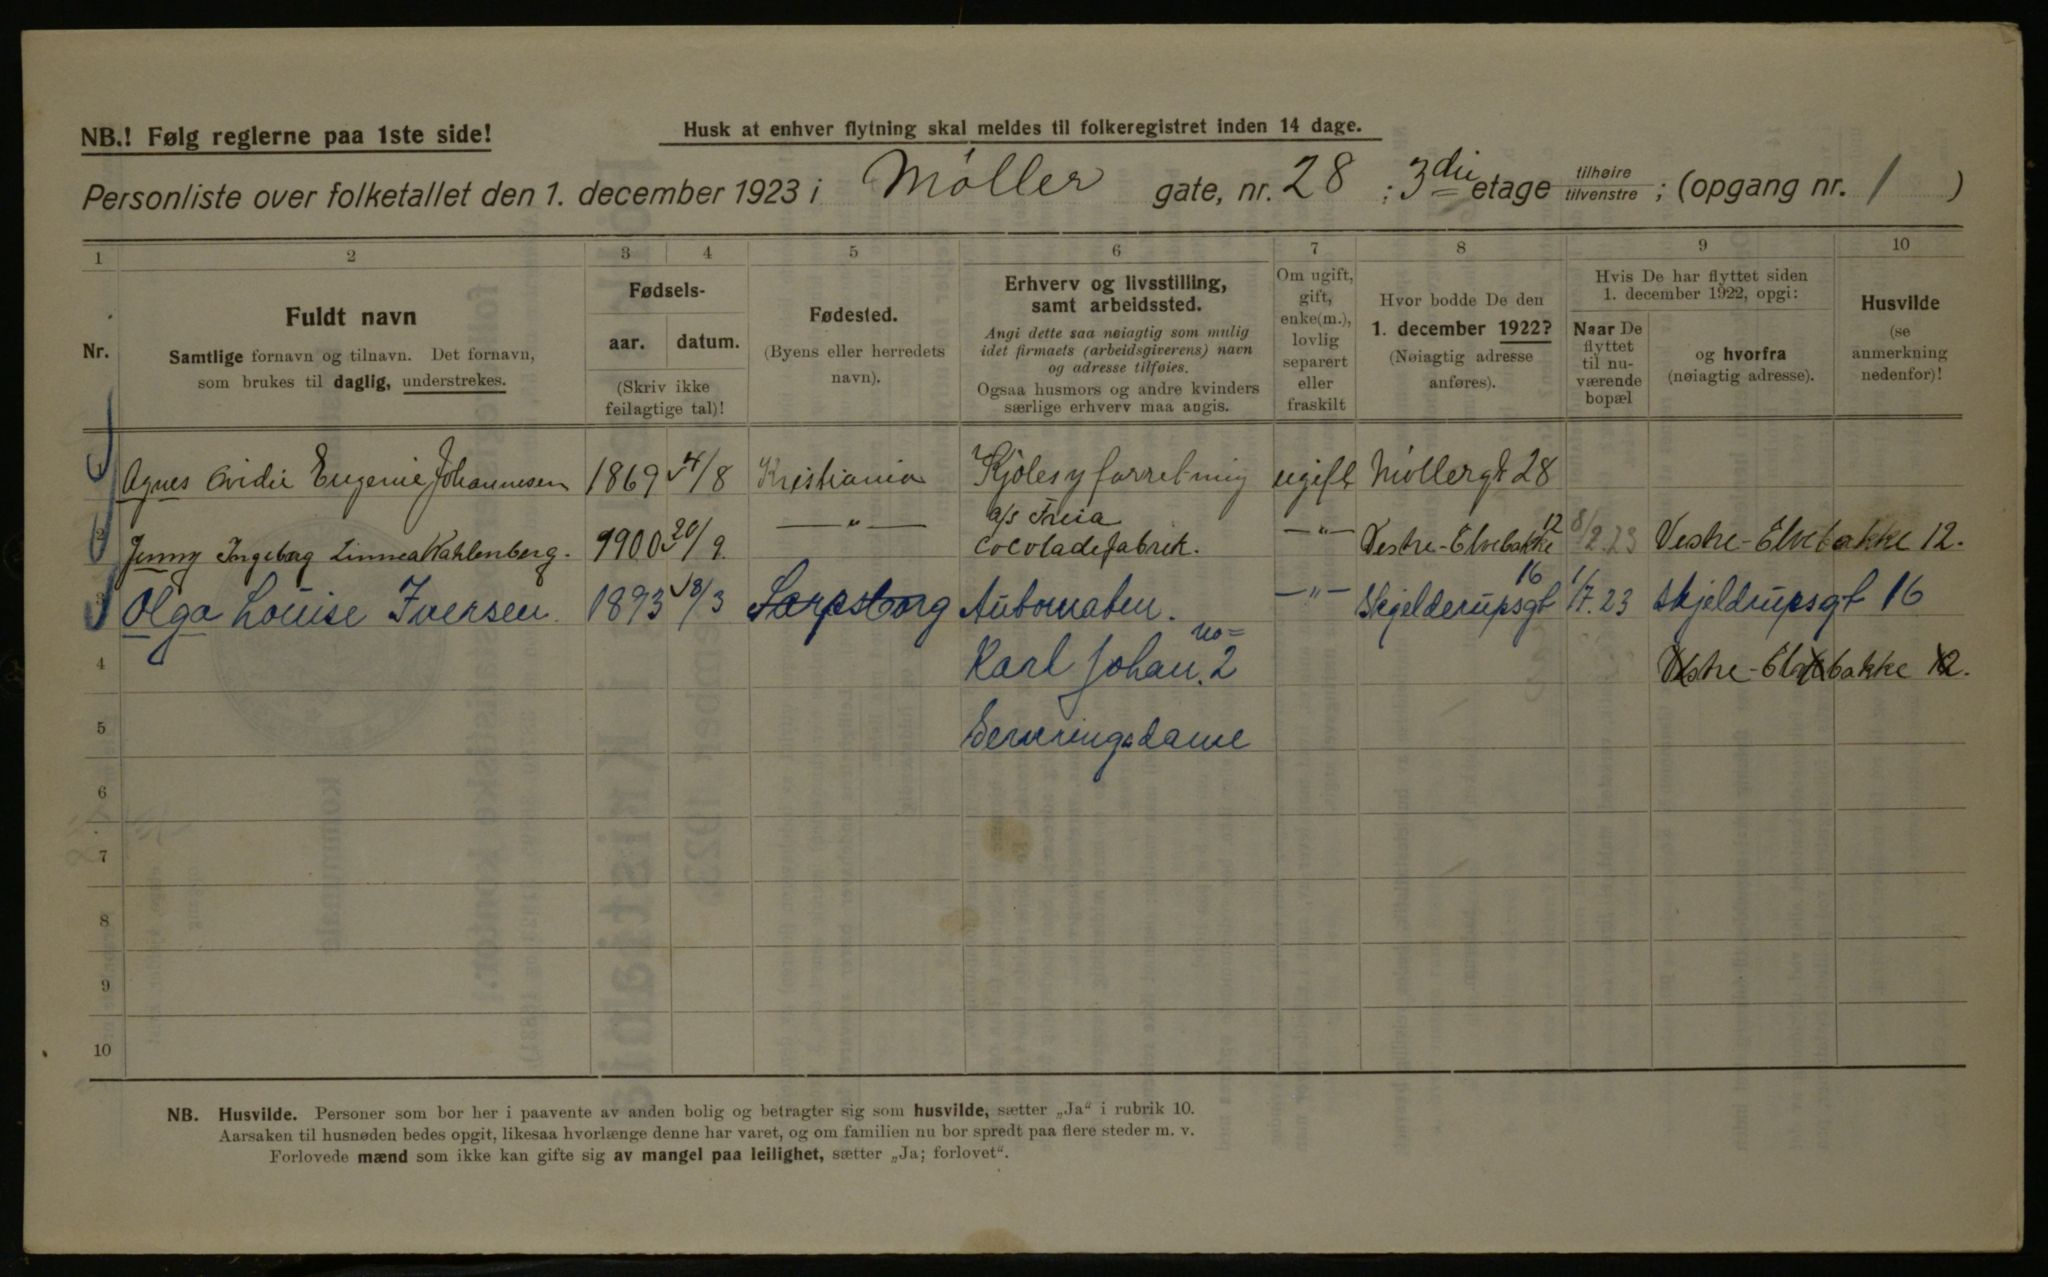 NB.! Følg reglerne paa 1ste side!
Husk at enhver flytning skal meldes til folkeregistret inden 14 dage.
Personliste over folketallet den 1. december 1923 i Møller gate, nr. 28 ; 3die etage tilhøire tilvenstre ; (opgang nr. 1 )
1 2 3 4 5 6 7 8 9 10
Nr.
Fuldt navn
Samtlige fornavn og tilnavn. Det fornavn,
som brukes til daglig, understrekes.
Fødsels-
aar. datum.
(Skriv ikke
feilagtige tal)!
Fødested.
(Byens eller herredets
navn).
Erhverv og livsstilling,
samt arbeidssted.
Angi dette saa nøiagtig som mulig
idet firmaets (arbeidsgiverens) navn
og adresse tilføies.
Ogsaa husmors og andre kvinders
særlige erhverv maa angis.
Om ugift,
gift,
enke(m.),
lovlig
separert
eller
fraskilt
Hvor bodde De den
1. december 1922?
(Nøiagtig adresse
anføres).
Hvis De har flyttet siden
1. december 1922, opgi:
Naar De
flyttet
til nu-
værende
bopæl
og hvorfra
(nøiagtig adresse).
Husvilde
(se
anmerkning
nedenfor)!
1 Agnes Ovidie Eugenie Johannesen 1869 4/8 Kristiania Kjolesyforretning ugift Møllergt 28
2 Jenny Ingeborg Linnea Kahlenberg. 1900 20/9. —„— a/s Freia
Cocoladefabrik. —„— Vestre-Elvebakke 12 8/2.23 Vestre-Elvebakke 12.
3 Olga Louise Iversen. 1893 18/3 Sarpsborg Automaten. —„— Skjelderupsgt 16 1/7.23 Skjeldrupsgt 16
4 Karl Johan. no= 2 Vestre-Elvebakke 12.
5 Serveringsdame
6
7
8
9
10
NB. Husvilde. Personer som bor her i paavente av anden bolig og betragter sig som husvilde, sætter „Ja“ i rubrik 10.
Aarsaken til husnøden bedes opgit, likesaa hvorlænge denne har varet, og om familien nu bor spredt paa flere steder m. v.
Forlovede mænd som ikke kan gifte sig av mangel paa leilighet, sætter „Ja; forlovet“.